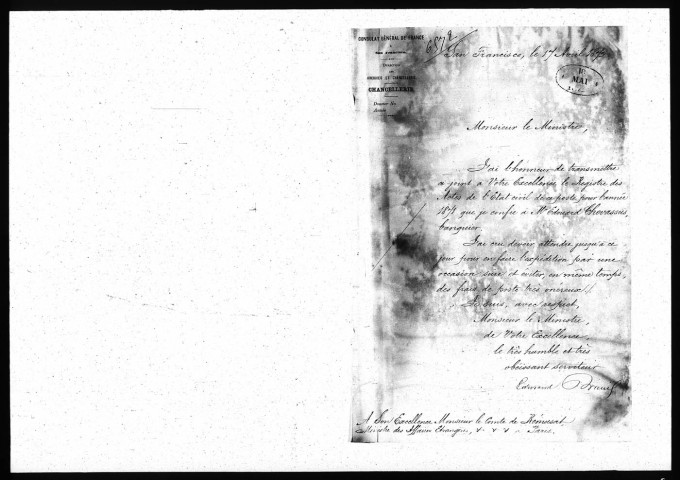 CONSULAT GÉNÉRAL DE FRANCE
À
SAN FRANCISCO
DIRECTION
CHANCELLERIE
San Francisco, le 17
MAI
Monsieur le Ministre,
J'ai l'honneur de transmettre
ci joint à Votre Excellence le Registre des
Actes de l'Etat civil de ce poste pour l'année
1871 que je confie à Mr Edouard
banquier.
J'ai cru devoir attendre jusqu'à ce
jour pour en faire l'expédition par une
occasion sûre et éviter, en même temps,
des frais de poste très onéreux.
Je suis, avec respect,
Monsieur le Ministre,
de Votre Excellence,
le très humble et très
obéissant serviteur
Edmond
A Son Excellence Monsieur le Comte de Rémusat
Ministre des Affaires Etrangères, &. &. &. à Paris.